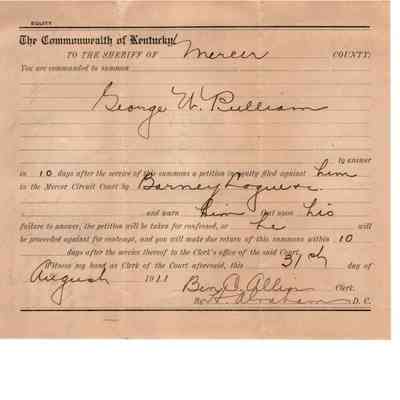 EQUITY
The Commonwealth of Kentucky
TO THE SHERIFF OF Mercer COUNTY:
You are commanded to summon
George W. Pulliam
to answer
in 10 days after the service of this summons a petition in equity filed against him
in the Mercer Circuit Court by Barney
and warn him that upon his
failure to answer, the petition will be taken for confessed, or he will
be proceeded against for contempt, and you will make due return of this summons within 10
days after the service thereof to the Clerk's office of the said Court.
Witness my hand as Clerk of the Court aforesaid, this 31st day of
August 1911 Ben C. Allin Clerk.
By Abraham D. C.